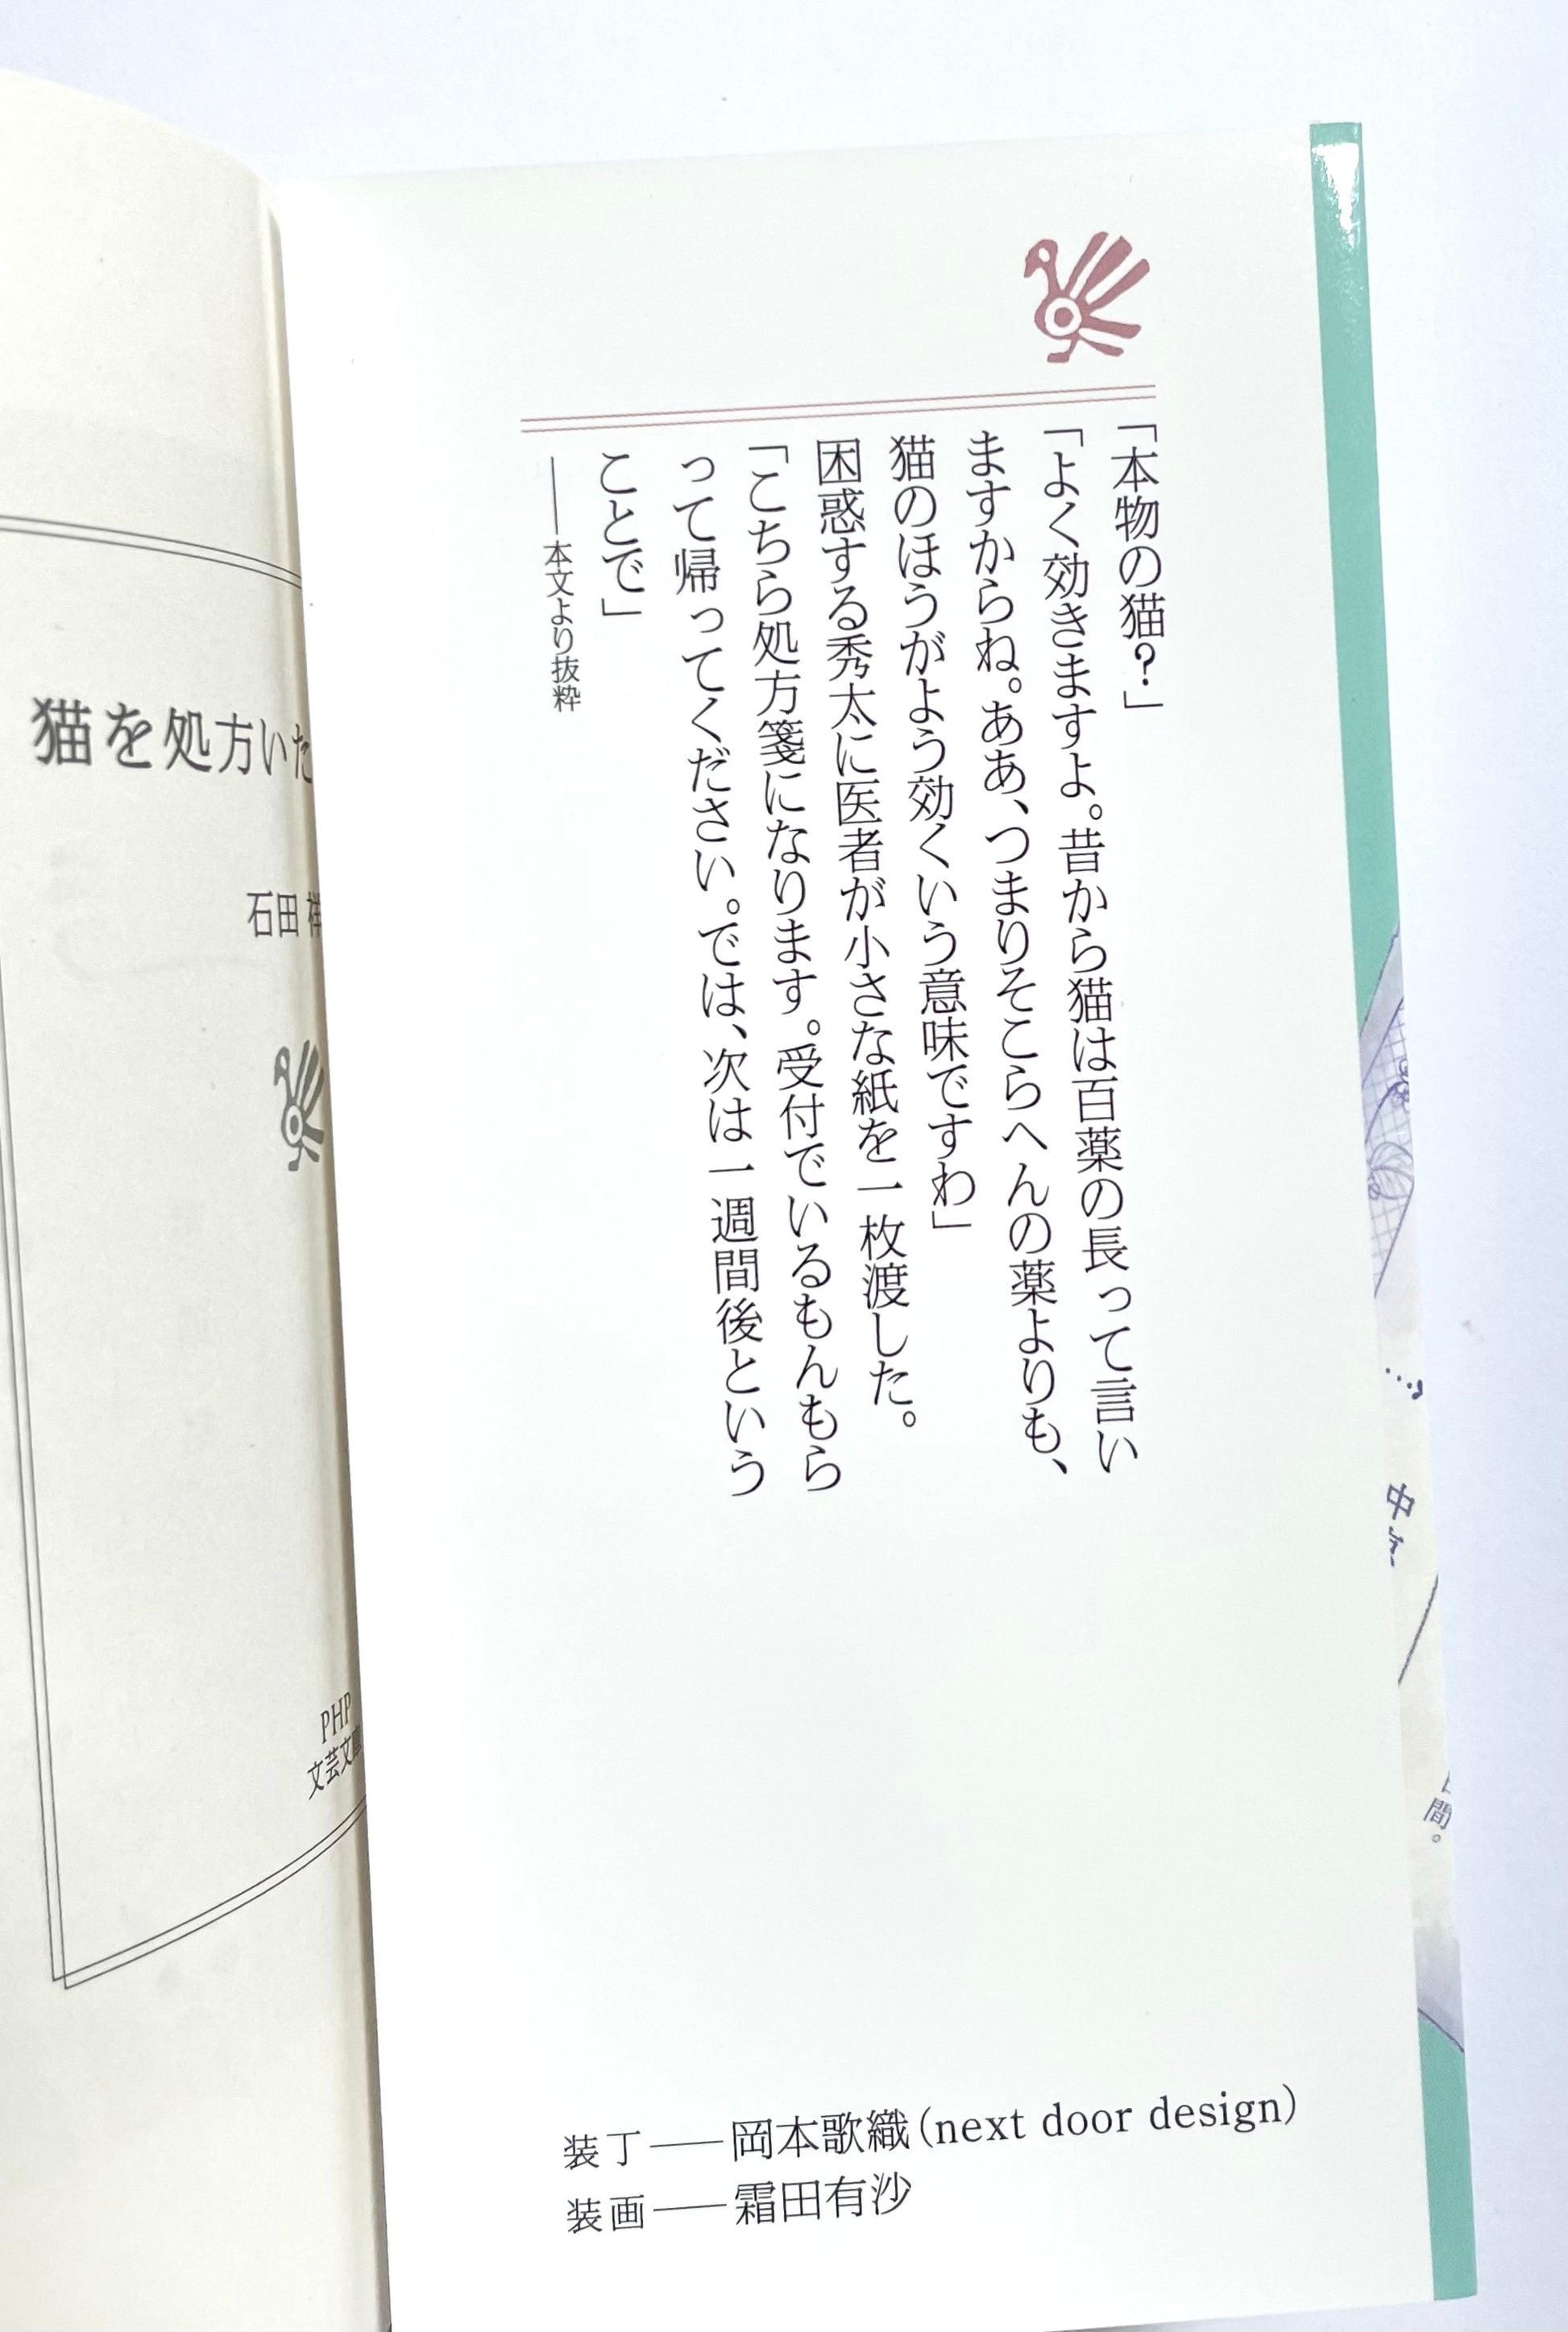 「本物の猫？」
「よく効きますよ。昔から猫は百薬の長って言い
ますからね。ああ、つまりそこらへんの薬よりも、
猫のほうがよう効くいう意味ですわ」
困惑する秀太に医者が小さな紙を一枚渡した。
「こちら処方箋になります。受付でいるもんもら
って帰ってください。では、次は一週間後という
ことで」
――本文より抜粋
装丁――岡本歌織(next door design)
装画――霜田有沙
猫を処方いた
石田
PHP
文芸文庫
中
間。